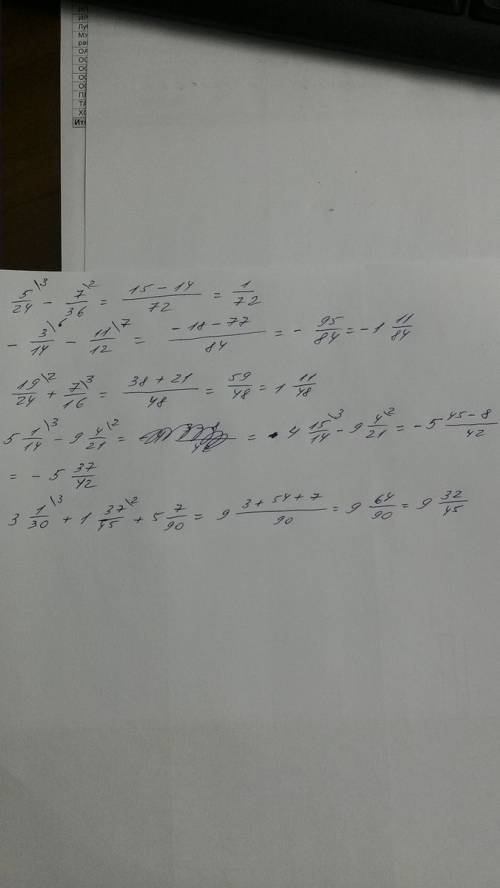 Ито
5/24\3 − 7/36\2 = (15 − 14)/72 = 1/72
− 3/14\6 − 11/12\7 = (−18 − 77)/84 = − 95/84 = −1 11/84
19/24\2 + 7/16\3 = (38 + 21)/48 = 59/48 = 1 11/48
5 1/14\3 − 9 4/21\2 = = 4 15/14\3 − 9 4/21\2 = −5 (45 − 8)/42
= − 5 37/42
3 1/30\3 + 1 37/45\2 + 5 7/90 = 9 (3 + 54 + 7)/90 = 9 64/90 = 9 32/45